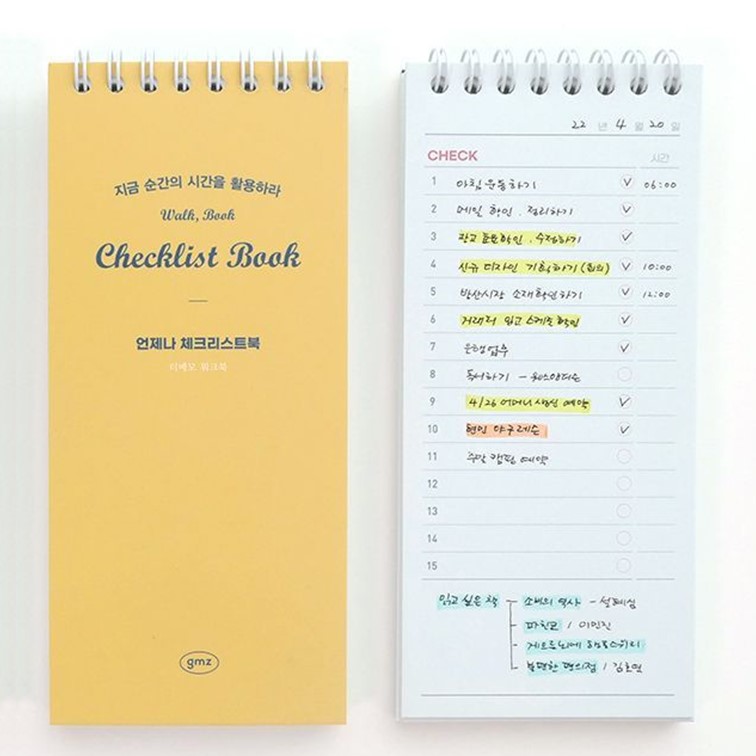 지금 순간의 시간을 활용하라
Walk, Book
Checklist Book
언제나 체크리스트북
더메모 워크북
gmz
22 년 4 월 20 일
CHECK 시간
1 아침운동하기 06:00
2 메일 확인 . 정리하기
3 광고 효율확인 . 수정하기
4 신규 디자인 기획하기 (회의) 10:00
5 방산시장 소재확인하기 12:00
6 거래처 입고 스케줄 확인
7 은행업무
8 독서하기 -
9 4/26 어머니 생신 예약
10 현인 야구레슨
11 주말 캠핑 예약
12
13
14
15
읽고 싶은 책 소비의 역사 - 설혜심
파친코 / 이민진
게으름뱅이
불편한 편의점 / 김호연